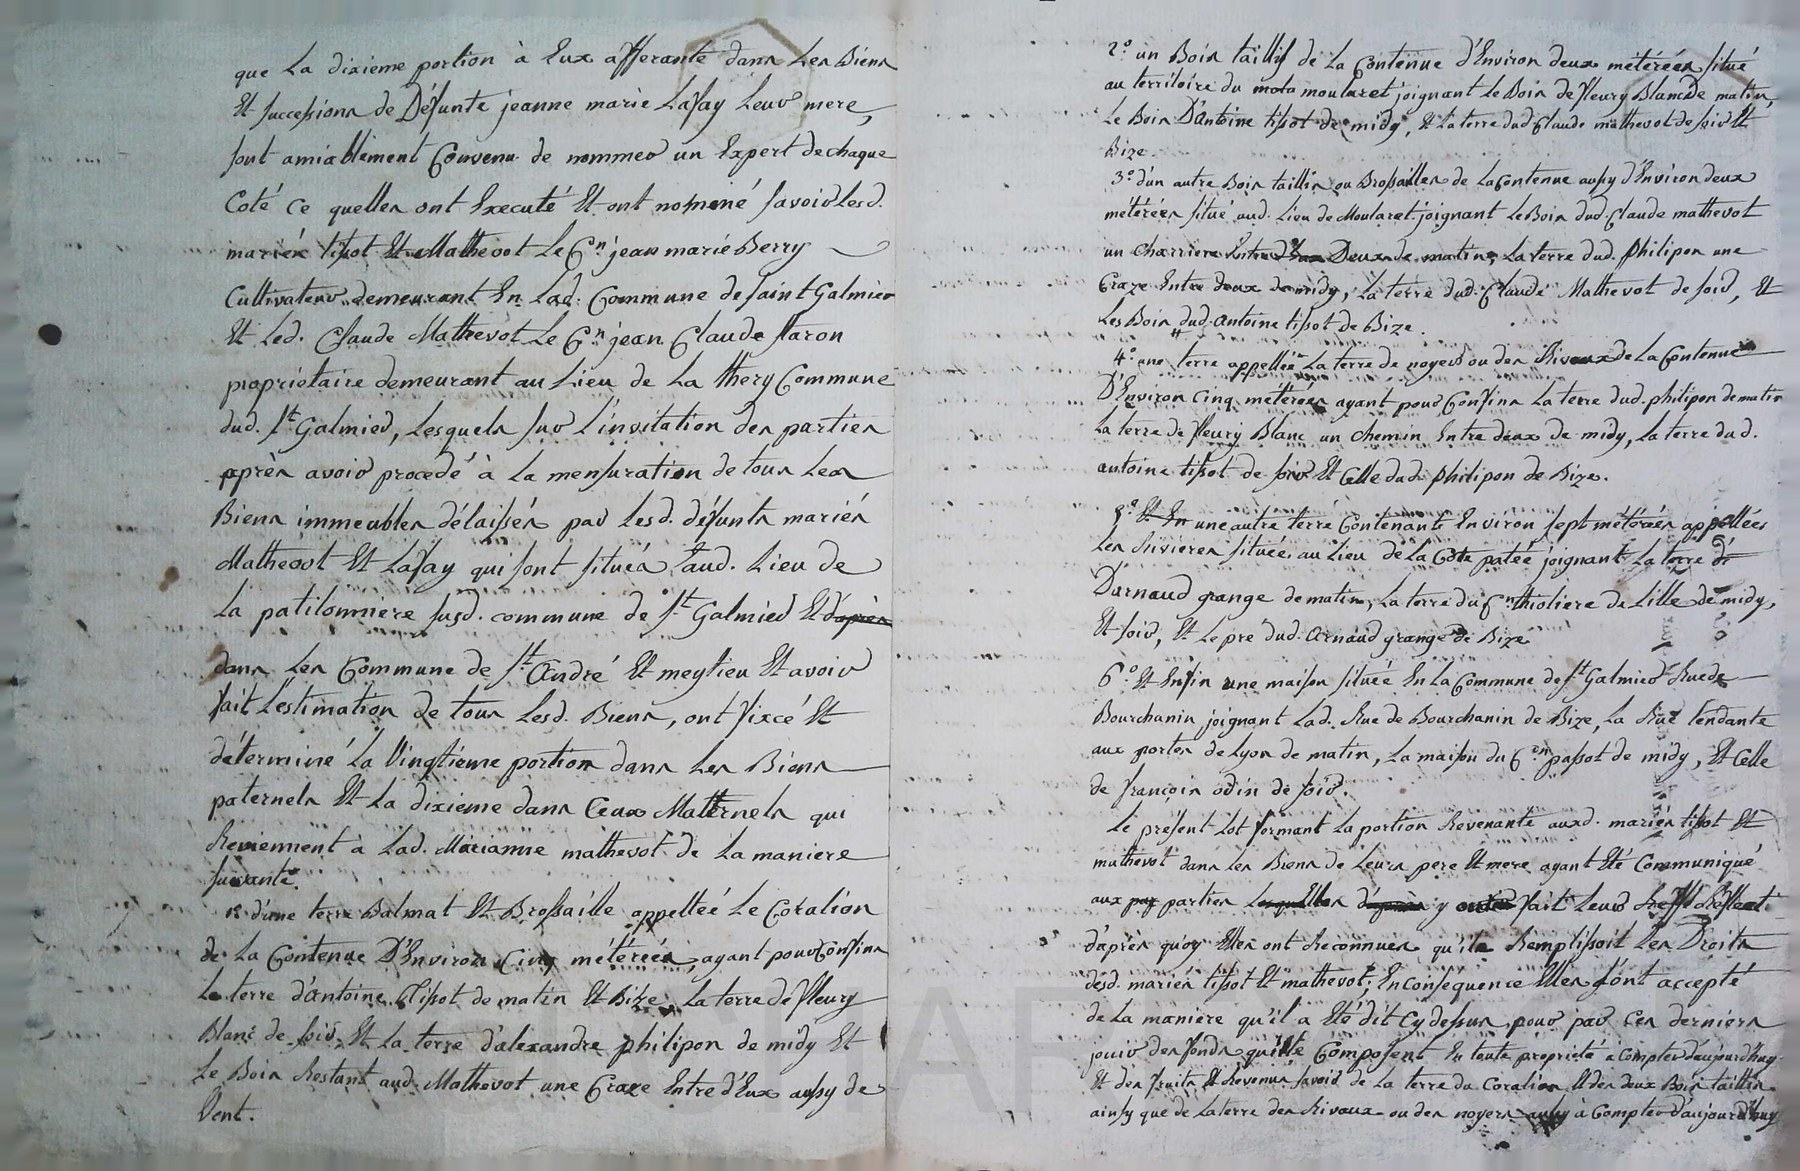 que La dixieme portion à Eux afferante dans Les Biens
Et successions de Défunte jeanne marie Lafay Leur mere,
sont amiablement Convenu de nommer un Expert de chaque
Coté ce quelles ont Executé Et ont nommé savoir Lesd.
mariés tissot Et Mathevot Le Cn. jean marie Berry
Cultivateur demeurant En Lad. Commune de saint Galmier
Et Led. Claude Mathevot Le Cn. jean Claude staron
propriétaire demeurant au Lieu de La thery Commune
dud. St Galmier, Lesquels sur l'invitation des parties
après avoir procedé à La mensuration de tous Les
Biens immeubles délaissés par Lesd. défunts mariés
Mathevot Et Lafay qui sont situés, taud. Lieu de
La patilonniere susd. commune de St Galmier Et d'après
dans Les Commune de St André Et meylieu Et avoir
fait L'estimation de tous Lesd. Biens, ont fixcé Et
déterminé La Vingtieme portion dans Les Biens
paternels Et La dixieme dans Ceux Maternels qui
Reviennent à Lad. Marianne mathevot de La maniere
suivante.
1° d'une terre Balmat Et Brossaille appellée Le Coralion
de La Contenue D'Environ Cinq métérées, ayant pour Confins
Le terre d'antoine Tissot de matin Et Bize, La terre de fleury
Blanc de soir, Et La terre d'alexandre philipon de midy Et
Le Bois Restant aud. Mathevot une Craze Entre d'Eux aussy de
Vent.
2° un Bois taillis de La Contenue d'Environ deux métérées situé
au territoire du mola moularet joignant Le Bois de fleury Blanc de matin,
Le Bois D'antoine tissot de midy, Et La terre dud Claude mathevot de soir Et
Bize.
3° d'un autre Bois taillis ou Brossailles de La Contenue aussy d'Environ deux
métérées situé aud. Lieu de Moularet joignant Le Bois dud. Claude mathevot
un charriere Entre d'Eux Deux de matin, La terre dud. philipon une
Craze Entre deux de midy, La terre dud. Claude Mathevot de soir, Et
Les Bois dud. antoine tissot de Bize.
4° une terre appellée La terre de noyers ou des Rivaux de La Contenue
D'Environ Cinq métérées ayant pour Confins La terre dud. philipon de matin
La terre de fleury Blanc un chemin Entre deux de midy, La terre dud.
antoine tissot de soir Et Celle dud. philipon de Bize.
5° Et En une autre terre Contenante Environ sept métérées appellées
Les Rivieres située au Lieu de La Cote patée joignant La terre de
D'arnaud grange de matin, La terre du Cn. thioliere de Lille de midy,
Et soir, Et Le pré dud. arnaud grange de Bize
6° Et Enfin une maison située En La Commune de St Galmier Rue de
Bourchanin joignant Lad. Rue de Bourchanin de Bize, La Rue tendante
aux portes de Lyon de matin, La maison du Cen. passot de midy, Et Celle
de françois odin de soir.
Le présent Lot formant La portion Revenante auxd. mariés tissot Et
mathevot dans Les Biens de Leurs pere Et mere ayant Eté Communiqué
aux parties Lesquelles d'après y fait Leur Reffl Réflecti
d'après quoy Elles ont Reconnues qu'ils Remplissoit Les Droits
desd. mariés tissot Et mathevot; En Conséquence Elles L'ont accepté
de La maniere qu'il a Eté dit Cy dessus, pour par Ces derniers
jouir des fonds qu'ille Composent En toute propriété à Compter d'aujourd'huy
Et des fruits Et Revenus savoir de La terre du Coralion, Et des deux Bois taillis
ainsy que de La terre des Rivaux ou des noyers aussy à Compter d'aujourd'huy